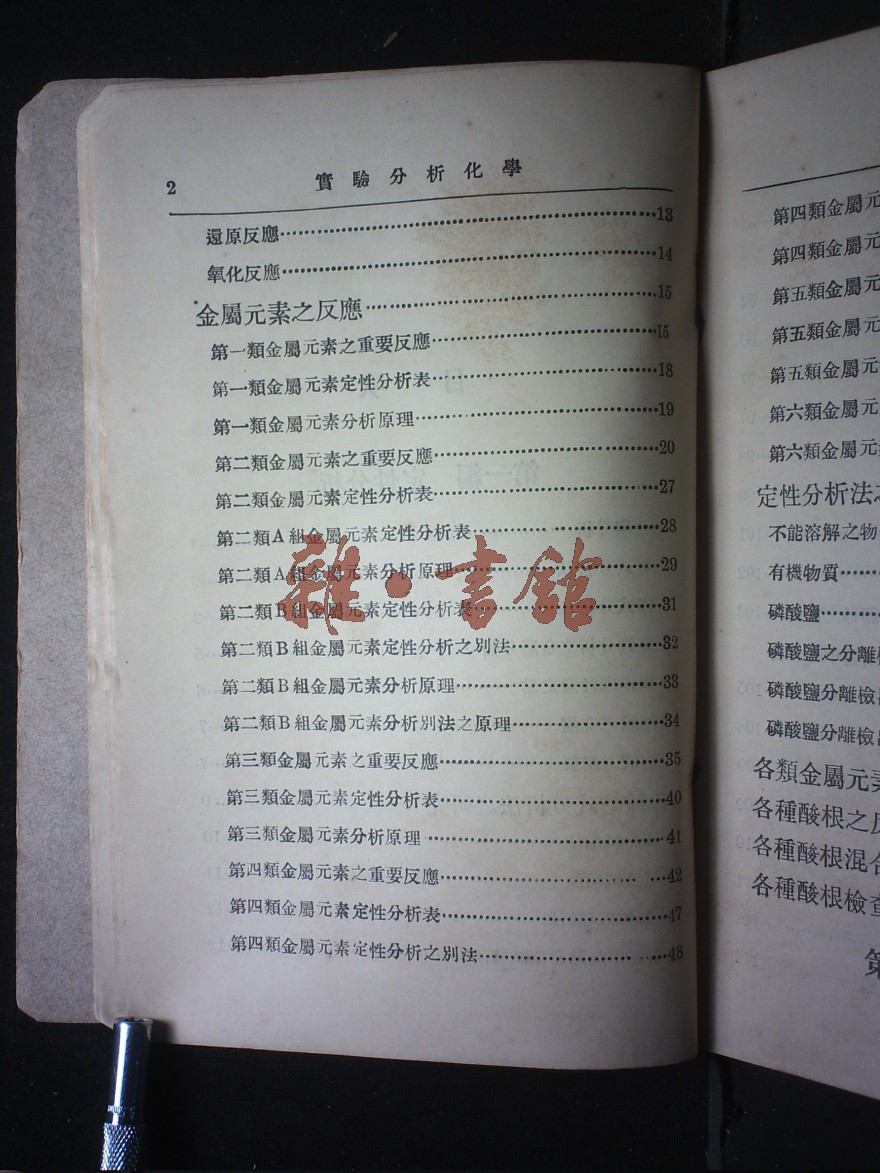 2 實驗分析化學
還原反應……13
氧化反應……14
金屬元素之反應……15
第一類金屬元素之重要反應……15
第一類金屬元素定性分析表……18
第一類金屬元素分析原理……19
第二類金屬元素之重要反應……20
第二類金屬元素定性分析表……27
第二類A組金屬元素定性分析表……28
第二類A組金屬元素分析原理……29
第二類B組金屬元素定性分析表……31
第二類B組金屬元素定性分析之別法……32
第二類B組金屬元素分析原理……33
第二類B組金屬元素分析別法之原理……34
第三類金屬元素之重要反應……35
第三類金屬元素定性分析表……40
第三類金屬元素分析原理……41
第四類金屬元素之重要反應……42
第四類金屬元素定性分析表……47
第四類金屬元素定性分析之別法……48
雜·書館
第四類金屬元
第四類金屬元
第五類金屬元
第五類金屬元
第五類金屬元
第六類金屬元
第六類金屬元
定性分析法
不能溶解之物
有機物質……
磷酸鹽……
磷酸鹽之分離
磷酸鹽分離檢
磷酸鹽分離檢
各類金屬元
各種酸根之
各種酸根混合
各種酸根檢查